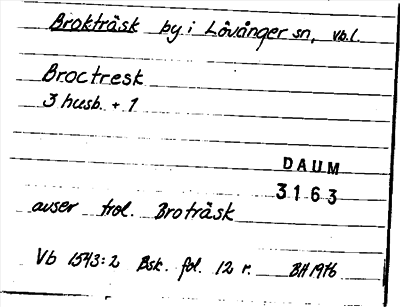 Brokträsk by i Lövånger sn, vb.l.
Broctresk
3 husb. + 1
DAUM
3163
avser trol. Broträsk
Vb 1543:2 Bsk. fol. 12 r. BH 1976